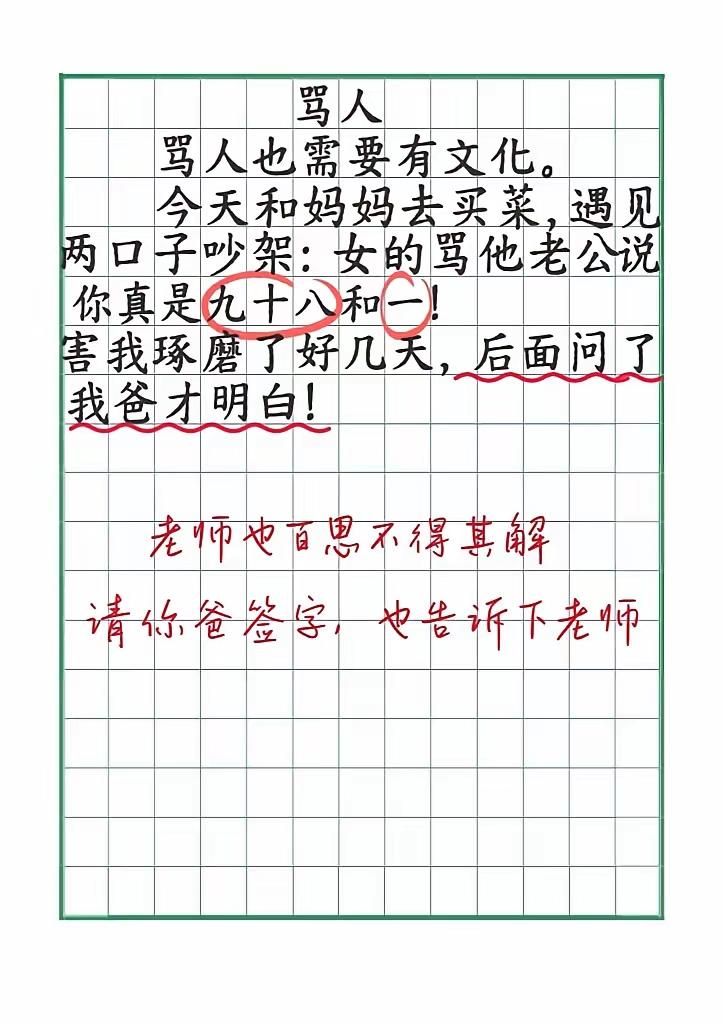 骂人
骂人也需要有文化。
今天和妈妈去买菜,遇见
两口子吵架:女的骂他老公说
你真是九十八和一!
害我琢磨了好几天,后面问了
我爸才明白!
老师也百思不得其解
请你爸签字,也告诉下老师